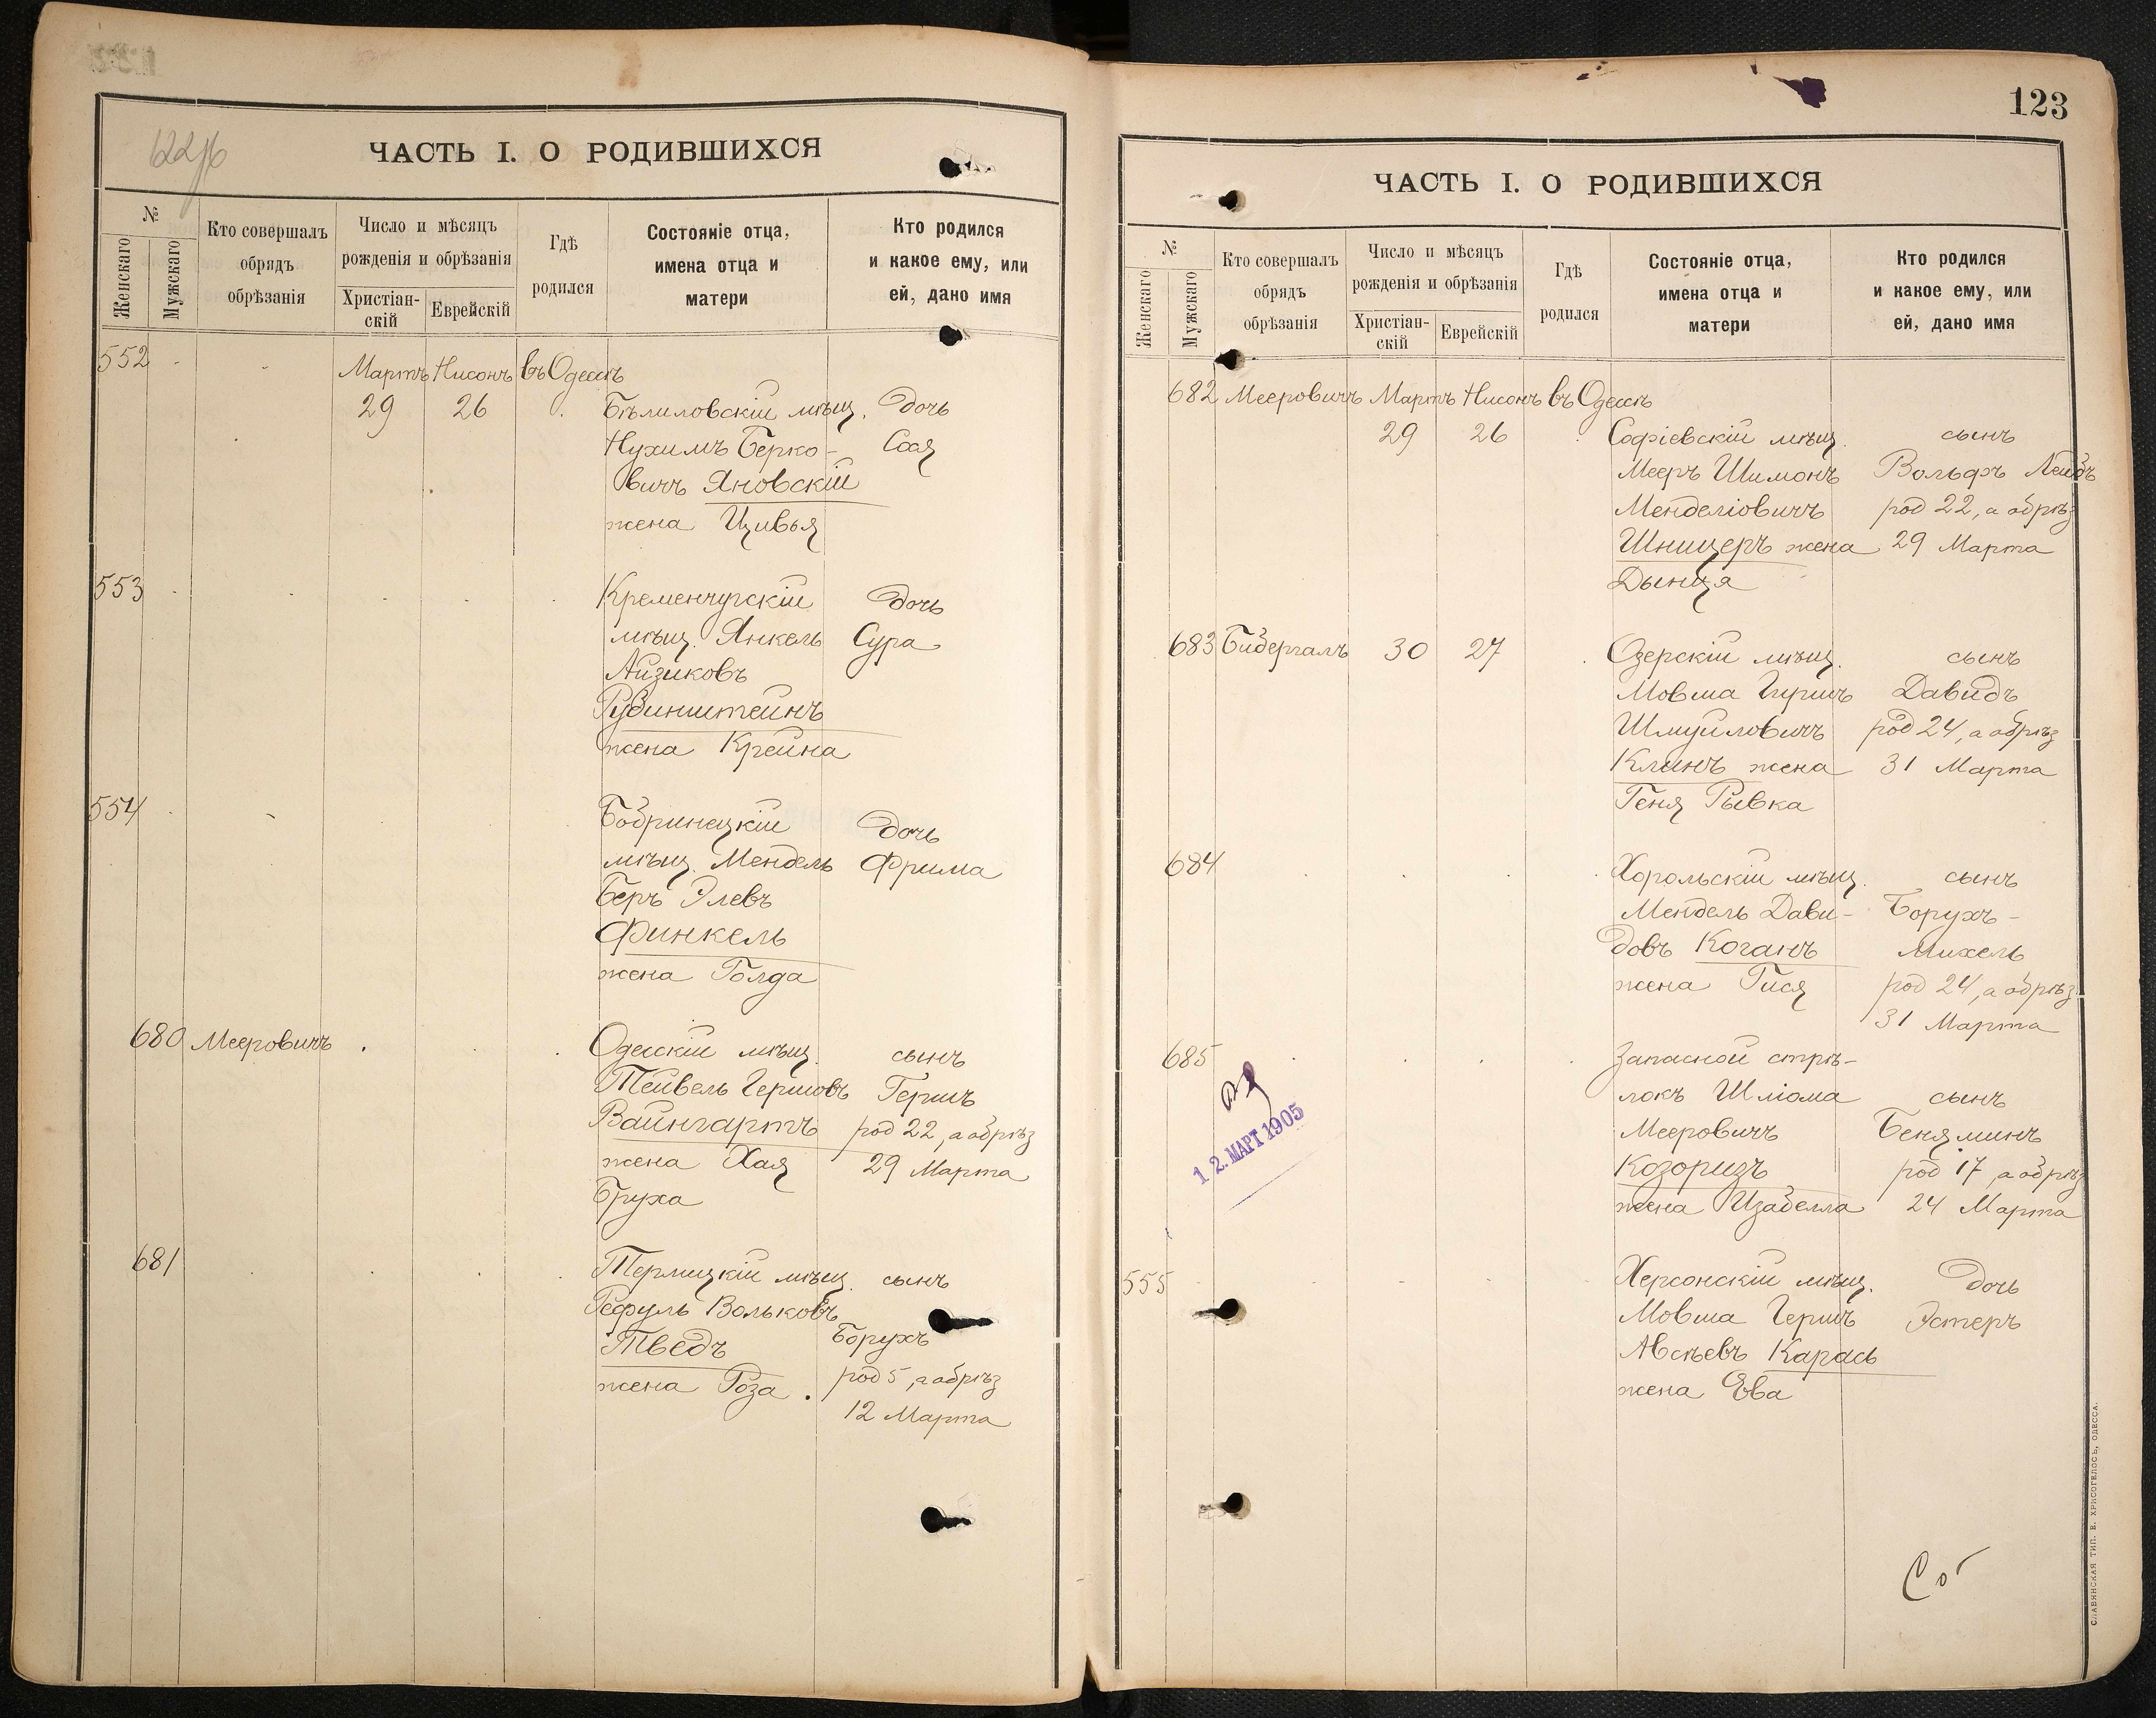 122 об
ЧАСТЬ I. О РОДИВШИХСЯ
№
Женскаго
Мужскаго
Кто совершалъ
обрядъ
обрѣзанія
Число и мѣсяцъ
рожденія и обрѣзанія
Христіан-
скій
Еврейскій
Гдѣ
родился
Состояніе отца,
имена отца и
матери
Кто родился
и какое ему, или
ей, дано имя
552
Мартъ Нисонъ въ Одессѣ
29 26 Бѣлиловскій мѣщ. дочь
Нухимъ Берко- Сося
вичъ Яновскій
жена Цивья
553 Кременчугскій дочь
мѣщ. Янкель Сура
Айзиковъ
Рубинштейнъ
жена Крейна
554 Бобринецкій дочь
мѣщ. Мендель Фрима
Беръ Элевъ
Финкель
жена Голда
680 Мееровичъ Одесскій мѣщ. сынъ
Тейвель Гершовъ Гершъ
Вайнгартъ род 22, а обрѣз
жена Хая 29 Марта
Бруха
681 Терлицкій мѣщ. сынъ
Рефуль Вольковъ
Тведъ Борухъ
жена Роза. род 5, а обрѣз
12 Марта
123
ЧАСТЬ I. О РОДИВШИХСЯ
№
Женскаго
Мужскаго
Кто совершалъ
обрядъ
обрѣзанія
Число и мѣсяцъ
рожденія и обрѣзанія
Христіан-
скій
Еврейскій
Гдѣ
родился
Состояніе отца,
имена отца и
матери
Кто родился
и какое ему, или
ей, дано имя
682 Мееровичъ Мартъ Нисонъ въ Одессѣ
29 26 Софіевскій мѣщ. сынъ
Мееръ Шимонъ Вольфъ Лейбъ
Менделіовичъ род 22, а обрѣз
Шницеръ жена 29 Марта
Дынця
683 Бидергалъ 30 27 Озерскій мѣщ. сынъ
Мовша Гершъ Давидъ
Шмуйловичъ род 24, а обрѣз
Клинъ жена 31 Марта
Геня Рывка
684 Хорольскій мѣщ. сынъ
Мендель Дави- Борухъ-
довъ Коганъ Михель
жена Гися род 24, а обрѣз
31 Марта
685 Запасной стрѣ-
локъ Шліома сынъ
Мееровичъ Беняминъ
Козоризъ род 17, а обрѣз
жена Изабелла 24 Марта
12. МАРТ 1905
555 Херсонскій мѣщ. дочь
Мовша Гершъ Эстеръ
Авсѣевъ Карась
жена Ева
СЛАВЯНСКАЯ ТИП. В. ХРИСОГЕЛОСЪ, ОДЕССА.